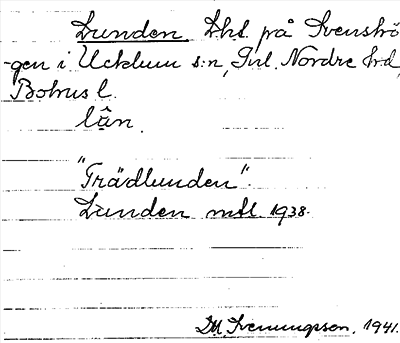 Lunden. Lht. på Svenskö
gen i Ucklum s:n, Inl. Nordre hd,
Bohus l.
lân.
"Trädlunden".
Lunden mtl. 1938.
DM Svenungsson. 1941.